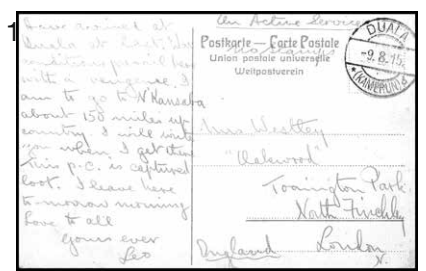 1
Have arrived at
Duala at last. War
conditions prevail here
with a vengeance. I
am to go to N'Kanseba
about 150 miles up
country. I will write
you when I get there
This p.c. is captured
loot. I leave here
to-morrow morning
Love to all
Yours ever
Leo
On Active Service
Postkarte — Carte Postale
Union postale universelle
Weltpostverein
DUALA
-9.8.15.
(KAMERUN)
Mrs Westley
"Oakwood"
Torrington Park
North Finchley
London
N.
England